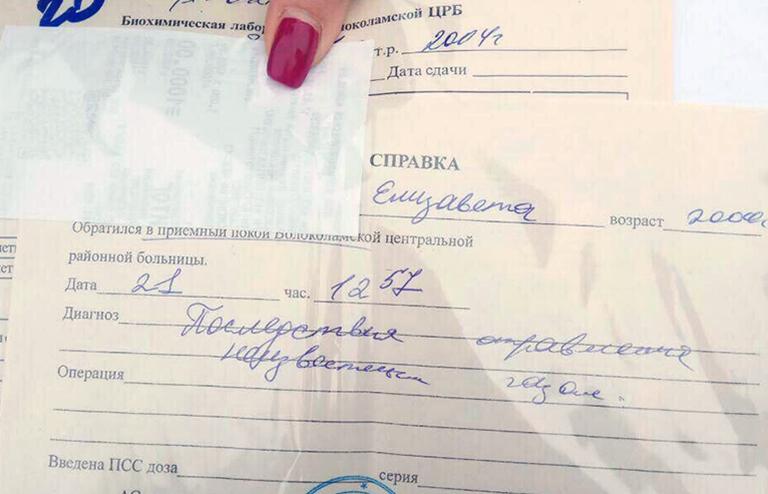 Биохимическая Волоколамской ЦРБ
т.р. 2004г
Дата сдачи
СПРАВКА
Елизавета возраст
Обратился в приемный покой Волоколамской центральной
районной больницы.
Дата 21 час. 12 57
Диагноз Последствия отравления
неизвестным газом.
Операция
Введена ПСС доза серия